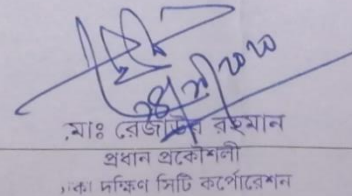 মোঃ রেজাউর রহমান
প্রধান প্রকৌশলী
ঢাকা দক্ষিণ সিটি কর্পোরেশন